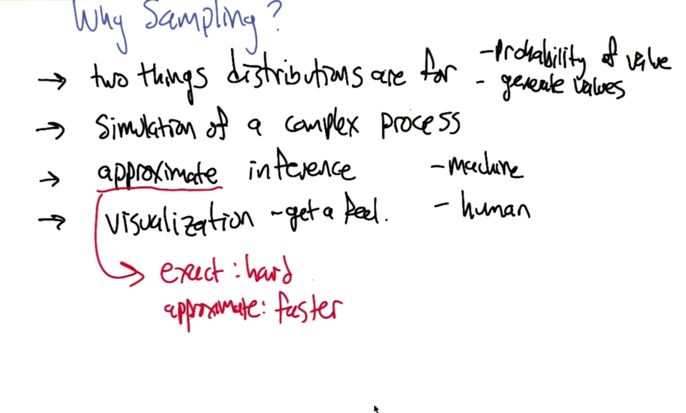 Why Sampling?
→ two things distributions are for - Probability of value
- generate values
→ Simulation of a complex process
→ approximate inference - machine
→ visualization - get a feel. - human
exact: hard
approximate: faster